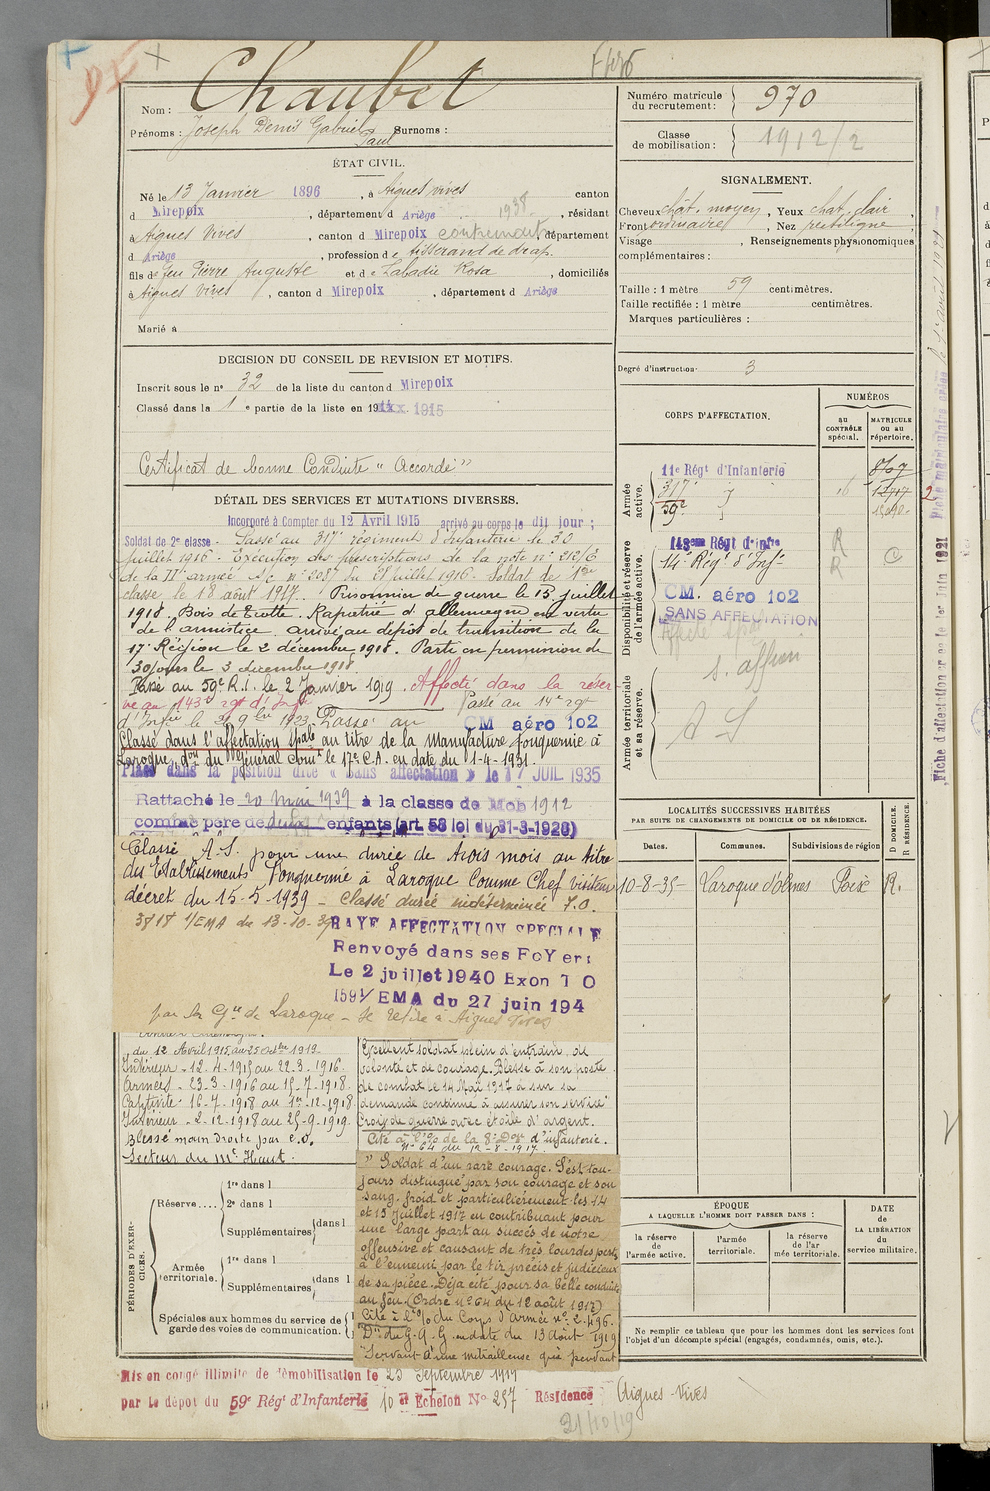 Chaubet
Nom :
Prénoms : Joseph Denis Gabriel Paul Surnoms :
ÉTAT CIVIL.
Né le 13 Janvier 1896, à Aigues vives canton
d Mirepoix, département d Ariège, résidant
1938
à Aigues Vives, canton d Mirepoix département
d Ariège, profession de tisserand de drap.
fils de feu Pierre Auguste et de Labadie Rosa, domiciliés
à Aigues Vives, canton d Mirepoix, département d Ariège
Marié à
DECISION DU CONSEIL DE REVISION ET MOTIFS.
Inscrit sous le n° 32 de la liste du canton d Mirepoix
Classé dans la 1 e partie de la liste en 19 1915
Certificat de bonne Conduite " Accordé "
DÉTAIL DES SERVICES ET MUTATIONS DIVERSES.
Incorporé à Compter du 12 Avril 1915 arrivé au corps le dit jour ;
Soldat de 2e classe - Passé au 317e régiment d'Infanterie le 30
juillet 1916 - Exécution des prescriptions de la note n° 212/C
de la IIe armée n° 2087 du 28 juillet 1916. Soldat de 1ère
classe le 18 août 1917. Prisonnier de guerre le 15 juillet
1918. Bois de Rapatrié d'allemagne en vertu
de l'armistice arrivé au dépôt de transition de la
17e Région le 2 décembre 1918. Parti en permission de
30 jours le 3 décembre 1918
Passé au 59e R.I. le 2 Janvier 1919. Affecté dans la réser-
ve au 143e rgt d'Infie Passé au 14e rgt
d'Infie le 30 9bre 1923 Passé au CM aéro 102
Classé dans l'affectation spale au titre de la Manufacture fonquernie à
Laroque, don du Général Comt le 17e C.A. en date du 1-4-1931.
Placé dans la position dite « Sans affectation » le 17 JUIL 1935
Rattaché le 20 Mai 1939 à la classe de Mob 1912
comme père de deux enfants (art. 58 loi du 31-3-1928)
Classé A.S. pour une durée de trois mois au titre
des Etablissements Fonquernie à Laroque Comme Chef visiteur
décret du 15-5-1939 - Classé durée indéterminée T.O.
3818 1/EMA du 13-10-39
RAYE AFFECTATION SPECIALE
Renvoyé dans ses FoYers
Le 2 juillet 1940 Exon T O
1591/EMA du 27 juin 194
par la Gie de Laroque - se retire à Aigues Vives
du 12 Avril 1915 au 25 1919
Intérieur - 12-4-1915 au 22-3-1916
Armées - 23-3-1916 au 15-7-1918
Captivité - 16-7-1918 au 1er-12-1918
Intérieur - 2-12-1918 au 25-9-1919
Blessé main droite par e.o.
Secteur du Mt Haut.
Excellent soldat plein d'entrain, de
volonté et de courage. Blessé à son poste
de combat le 14 Mai 1917 a sur sa
demande continué à assurer son service"
Croix de guerre avec étoile d'argent.
Cité à l'O/ de la 8e Don d'infanterie.
n° 64 du 12-8-1917.
" Soldat d'un rare courage. S'est tou-
jours distingué par son courage et son
sang-froid et particulièrement les 14
et 15 Juillet 1917 en contribuant pour
une large part au succès de notre
offensive et causant de très lourdes pertes
à l'ennemi par le tir précis et judicieux
de sa pièce. Déjà cité pour sa belle conduite
au feu. (Ordre n° 64 du 12 août 1917)
Cité à l'O/ du Corps d'Armée n° 2.496.
Don du G.Q.G. en date du 13 Août 1919
"Servant d'une mitrailleuse qui pendant
PÉRIODES D'EXERCICES.
Réserve.....
1re dans l
2e dans l
Supplémentaires dans l
Armée territoriale.
1re dans l
Supplémentaires dans l
Spéciales aux hommes du service de
garde des voies de communication.
Mis en congé illimité de démobilisation le 25 Septembre 1919
par le dépôt du 59e Régt d'Infanterie 10 e Echelon N° 257 Résidence Aigues-Vives
21/10/19
Numéro matricule
du recrutement : 970
Classe
de mobilisation : 1912/2
SIGNALEMENT.
Cheveux chât. moyen, Yeux chat. clair,
Front ordinaire, Nez rectiligne,
Visage , Renseignements physionomiques
complémentaires :
Taille : 1 mètre 59 centimètres.
Taille rectifiée : 1 mètre centimètres.
Marques particulières :
Degré d'instruction 3
CORPS D'AFFECTATION.
NUMÉROS
au CONTRÔLE spécial.
MATRICULE OU AU répertoire.
Armée active.
11e Régt d'Infanterie
317e
59e
16 12717
2
Disponibilité et réserve de l'armée active.
143eme Régt d'infie R
14e Régt d'Inf- R C
CM. aéro 102
SANS AFFECTATION
Affecté spal
Armée territoriale et sa réserve.
s. affion
A S
LOCALITÉS SUCCESSIVES HABITÉES
PAR SUITE DE CHANGEMENTS DE DOMICILE OU DE RÉSIDENCE.
Dates. Communes. Subdivisions de région D DOMICILE. R RÉSIDENCE.
10-8-35- Laroque d'olmes Foix R.
ÉPOQUE
A LAQUELLE L'HOMME DOIT PASSER DANS :
la réserve de l'armée active.
l'armée territoriale.
la réserve de l'armée territoriale.
DATE
de
LA LIBÉRATION
du
service militaire.
Ne remplir ce tableau que pour les hommes dont les services font
l'objet d'un décompte spécial (engagés, condamnés, omis, etc.).
Fiche d'affectation le 1er Juin 1921